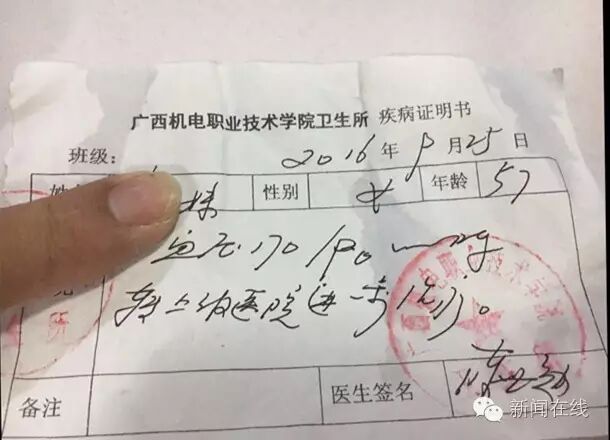 广西机电职业技术学院卫生所 疾病证明书
班级： 2016年9月25日
姓 株 性别 女 年龄 57
血压170/90mmHg
见 转上级医院进一步诊疗。
所
备注 医生签名
新闻在线